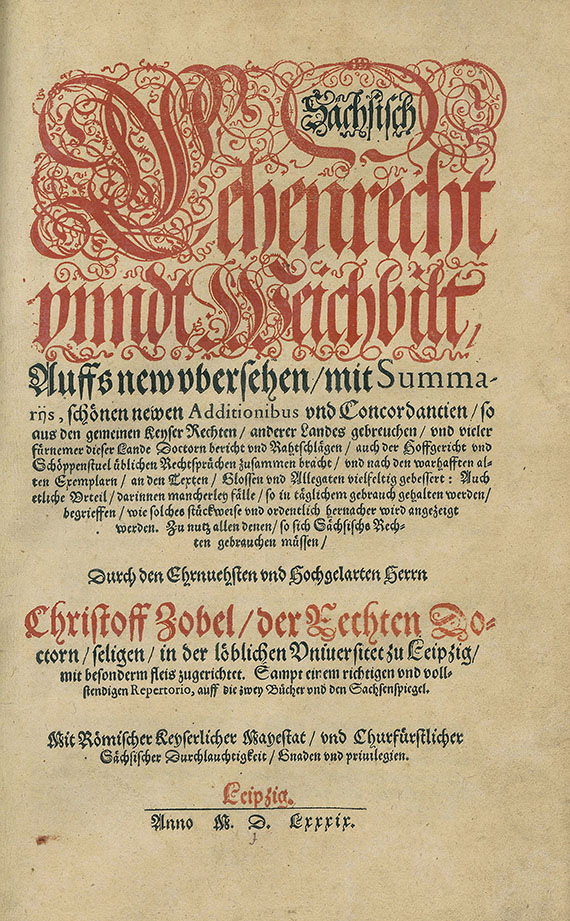 Sächsisch
Lehenrecht
vnndt Weichbilt,
Auffs new vbersehen / mit Summa-
rijs, schönen newen Additionibus vnd Concordantien / so
aus den gemeinen Keyser Rechten / anderer Landes gebreuchen / vnd vieler
fürnemer dieser Lande Doctorn bericht vnd Rahtschlägen / auch der Hoffgericht vnd
Schöppenstuel üblichen Rechtsprüchen zusammen bracht / vnd nach den warhafften al-
ten Exemplarn / an den Texten / Glossen vnd Allegaten vielfeltig gebessert: Auch
etliche Vrteil / darinnen mancherley fälle / so in täglichem gebrauch gehalten werden /
begrieffen / wie solches stückweise vnd ordentlich hernacher wird angezeigt
werden. Zu nutz allen denen / so sich Sächsischs Rech-
ten gebrauchen müssen /
Durch den Ehrnuehsten vnd Hochgelarten Herrn
Christoff Zobel / der Rechten Do-
ctorn / seligen / in der löblichen Vniuersitet zu Leipzig /
mit besonderm fleis zugerichtet. Sampt einem richtigen vnd voll-
stendigen Repertorio, auff die zwey Bücher vnd den Sachsenspiegel.
Mit Römischer Keyserlicher Mayestat / vnd Churfürstlicher
Sächsischer Durchlauchtigkeit / Gnaden vnd priuilegien.
Leipzig.
Anno M. D. LXXXIX.